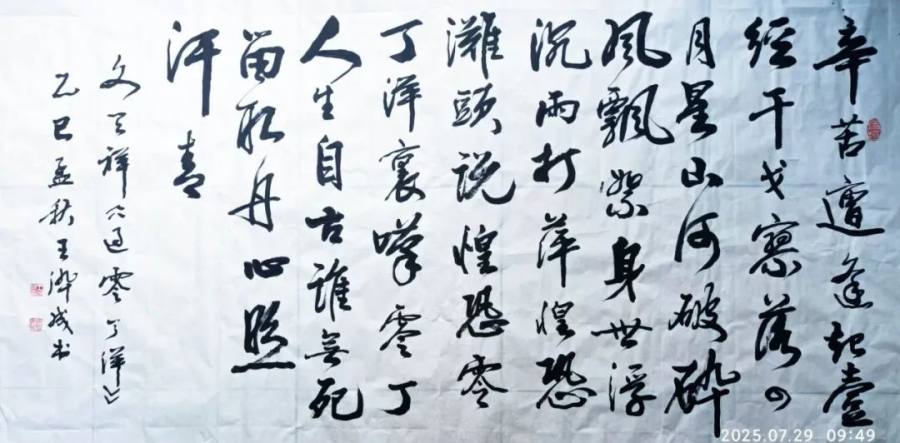 辛苦遭逢起壹
經干戈寥落四
月星山河破碎
風飄絮身世浮
沉雨打萍惶恐
灘頭説惶恐零
丁洋裏嘆零丁
人生自古誰無死
留取丹心照
汗青
文天祥《过零丁洋》
乙巳孟秋王 成书
2025.07.29 09:49